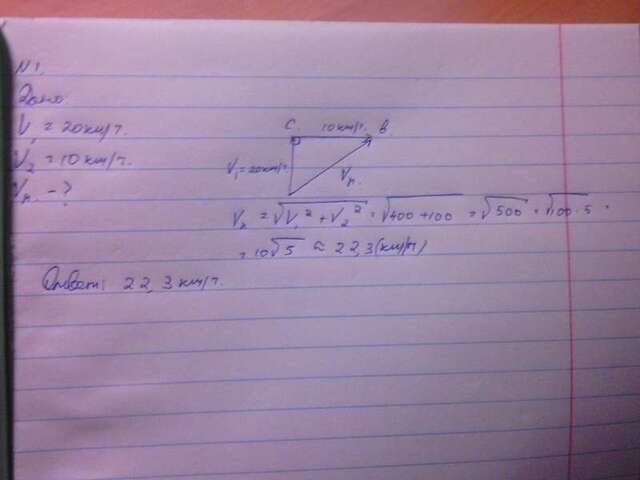 N1.
Дано.
V₁ = 20км/ч.
V₂ = 10км/ч.
Vп. - ?
С. 10км/ч. В.
V₁ = 20км/ч.
Vп.
Vп = √V₁² + V₂² = √400 + 100 = √500 = √100 · 5 =
= 10√5 ≈ 22,3(км/ч)
Ответ: 22,3км/ч.